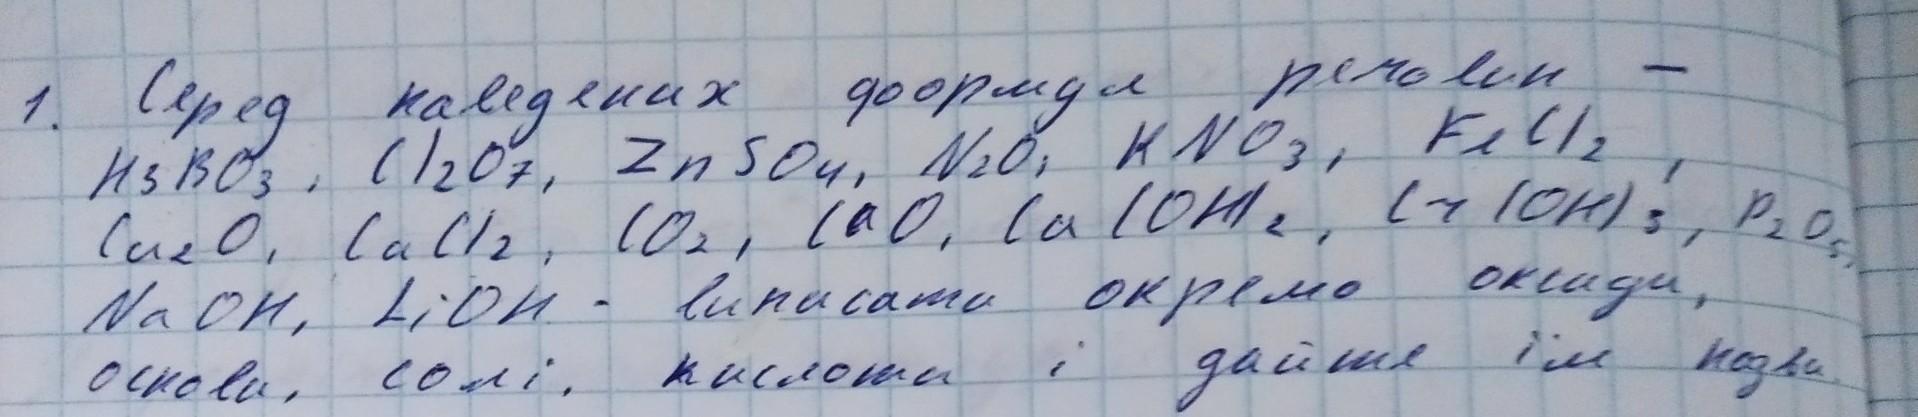 1. Серед наведених формул речовин –
H3BO3, Cl2O7, ZnSO4, N2O, KNO3, FeCl2,
Cu2O, CaCl2, CO2, CaO, Ca(OH)2, Cr(OH)3, P2O5,
NaOH, LiOH - виписати окремо оксиди,
основи, солі, кислоти і дайте їм назви